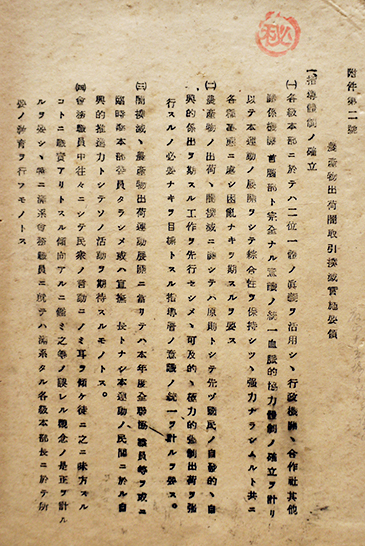 秘
附件第二號
農産物出荷闇取引撲滅實施要領
一、指導體制ノ確立
㈠各級本部ニ於テハ二位一體ノ眞價ヲ活用シ、行政機關、合作社其他
關係機關首腦部ト完全ナル意識ノ統一血盟的協力體制ノ確立ヲ計リ
以テ本運動ノ展開ヲシテ綜合性ヲ保持シツヽ強力ナラシムルト共ニ
各種運動ニ處シ困亂ナキヲ期スルヲ要ス
㈡農産物ノ出荷、闇撲滅ニ際シテハ原則トシテ先ヅ國民ノ自發的、自
興的供出ヲ期スル工作ヲ先行セシメ、可及的、力的強制出荷ヲ強
行スルノ必要ナキヲ目標トスル指導者ノ意識ノ統一ヲ計ルヲ要ス。
㈢闇撲滅、農産物出荷運動展開ニ當リテハ本年度全聯協議員等ヲ或ハ
臨時縣本部委員タラシメ或ハ宣撫長トナシ本運動ノ民間ニ於ル自
興的推進力トシテソノ活動ヲ期待スルモノトス。
㈣會務職員中往々ニシテ民衆ノ言動ニノミ耳ヲ傾ケ徒ニ之ニ味方スル
コトニ職責アリトスル傾向アルニ鑑ミ之等ノ誤レル觀念ノ是正ヲ計ル
ヲ要シ、特ニ滿系會務職員ニ就テハ滿系タル各級本部長ニ於テ
要ノ教育ヲ行フモノトス